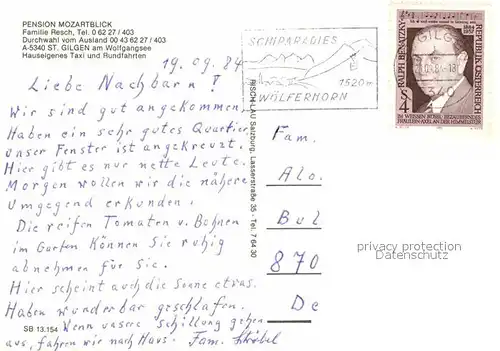 PENSION MOZARTBLICK
Familie Resch, Tel. 0 62 27 / 403
Durchwahl vom Ausland 00 43 62 27 / 403
A-5340 ST. GILGEN am Wolfgangsee
Hauseigenes Taxi und Rundfahrten
19.09.84
Liebe Nachbarn!
Wir sind gut angekommen,
Haben ein sehr gutes Quartier
unser Fenster ist angekreuzt.
Hier gibt es nur nette Leute.
Morgen wollen wir die nähere
Umgegend erkunden.
Die reifen Tomaten u. Bohnen
im Garten können Sie ruhig
abnehmen für Sie.
Hier scheint auch die Sonne etwas.
Haben wunderbar geschlafen.
Wenn unsere Schillung gehen
aus, fahren wir nach Haus. Fam.
SB 13.154
RISCH-LAU Salzburg, Lasserstraße 35 - Tel. 7 64 30
SCHIPARADIES
1520m
WÖLFERHORN
GILG
340
RALPH BENATZKY
1884
1957
S4
REPUBLIK ÖSTERREICH
IM WEISSEN RÖSSL · BEZAUBERNDES
FRÄULEIN · AXEL AN DER HIMMELSTÜR
Fam.
Alo.
Bul
870
De
privacy protection
Datenschutz